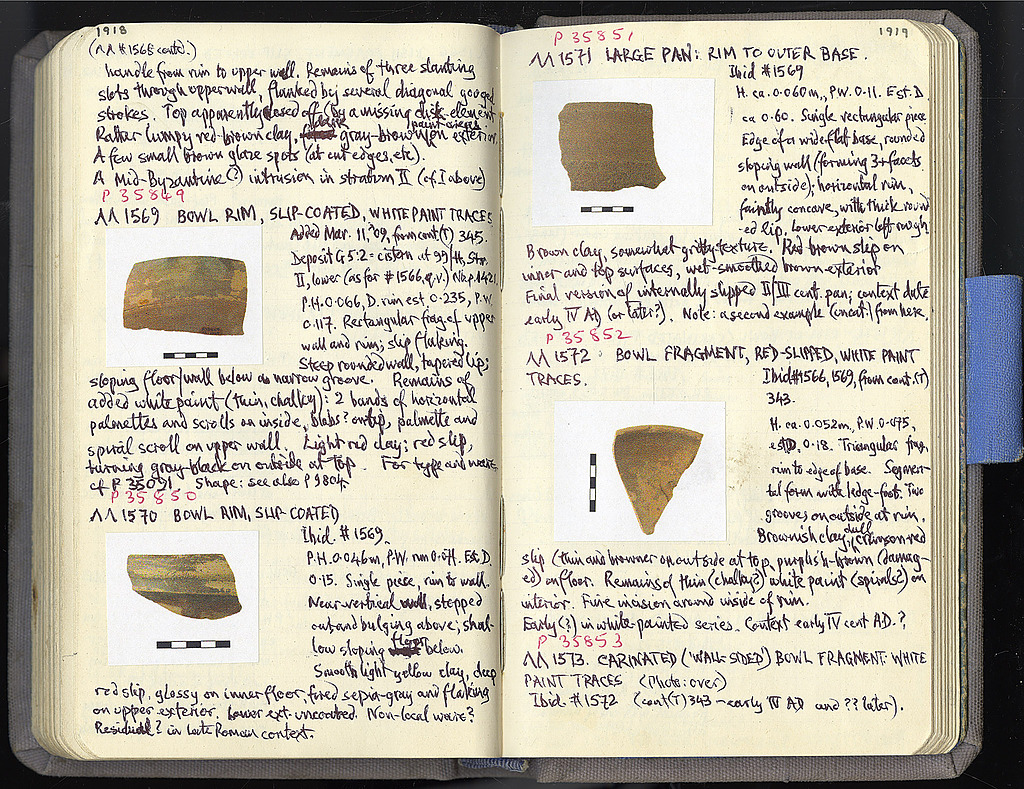 1918
(ΛΛ #1568 contd.)
handle from rim to upper wall. Remains of three slanting
slots through upper wall, flanked by several diagonal gouged
strokes. Top apparently closed off by a missing disk-element
Rather lumpy red-brown clay, gray-brown on exterior.
A few small brown glaze spots (at cut edges, etc).
A Mid-Byzantine(?) intrusion in stratum II (cf. I above)
P 35849
ΛΛ 1569 BOWL RIM, SLIP-COATED, WHITE PAINT TRACES
Added Mar. 11, '09, from cont.(T) 345.
Deposit G 5:2 = cistern at 99/H, Str.
II, lower (as for #1566, q.v.) Nbp. 1421
P.H. 0.066, D. rim est. 0.235, P.W.
0.117. Rectangular frag. of upper
wall and rim; slip flaking.
Steep rounded wall, tapered lip;
sloping floor/wall below a narrow groove. Remains of
added white paint (thin, chalky): 2 bands of horizontal
palmettes and scrolls on inside, blobs? on lip, palmette and
spiral scroll on upper wall. Light red clay; red slip,
turning gray-black on outside at top. For type and ware
cf P 35091 Shape: see also P 9804.
P 35850
ΛΛ 1570 BOWL RIM, SLIP COATED
Ibid. #1569.
P.H. 0.046m, P.W. rim 0.071. Est. D.
0.15. Single piece, rim to wall.
Near-vertical wall, stepped
out and bulging above; shal-
low sloping floor below.
Smooth light yellow clay, deep
red slip, glossy on inner floor, fired sepia-gray and flaking
on upper exterior. Lower ext. uncoated. Non-local ware?
Residual? in late Roman context.
1919
P 35851
ΛΛ 1571 LARGE PAN: RIM TO OUTER BASE.
Ibid #1569
H. ca. 0.060m, P.W. 0.11. Est. D.
ca 0.60. Single rectangular piece
Edge of a wide flat base, rounded
sloping wall (forming 3+ facets
on outside); horizontal rim,
faintly concave, with thick round-
ed lip. Lower exterior left rough
Brown clay, somewhat gritty texture. Red brown slip on
inner and top surfaces, wet-smoothed brown exterior
Final version of internally slipped II/III cent. pan; context date
early IV AD (or later?). Note: a second example (uncat.) from here.
P 35852
ΛΛ 1572 BOWL FRAGMENT, RED-SLIPPED, WHITE PAINT
TRACES.
Ibid #1566, 1569, from cont.(T)
343.
H. ca. 0.052m, P.W. 0.075,
est. D. 0.18. Triangular frag,
rim to edge of base. Segmen-
tal form with ledge-foot. Two
grooves on outside at rim.
Brownish clay, dull crimson-red
slip (thin and browner on outside at top, purplish-brown (damag-
ed) on floor. Remains of thin (chalky?) white paint (spirals?) on
interior. Fine incision around inside of rim.
Early(?) in white-painted series. Context early IV cent AD.?
P 35853
ΛΛ 1573. CARINATED ('WALL-SIDED') BOWL FRAGMENT: WHITE
PAINT TRACES (Photo: over)
Ibid. #1572 (cont(T) 343 – early IV AD and ?? later).